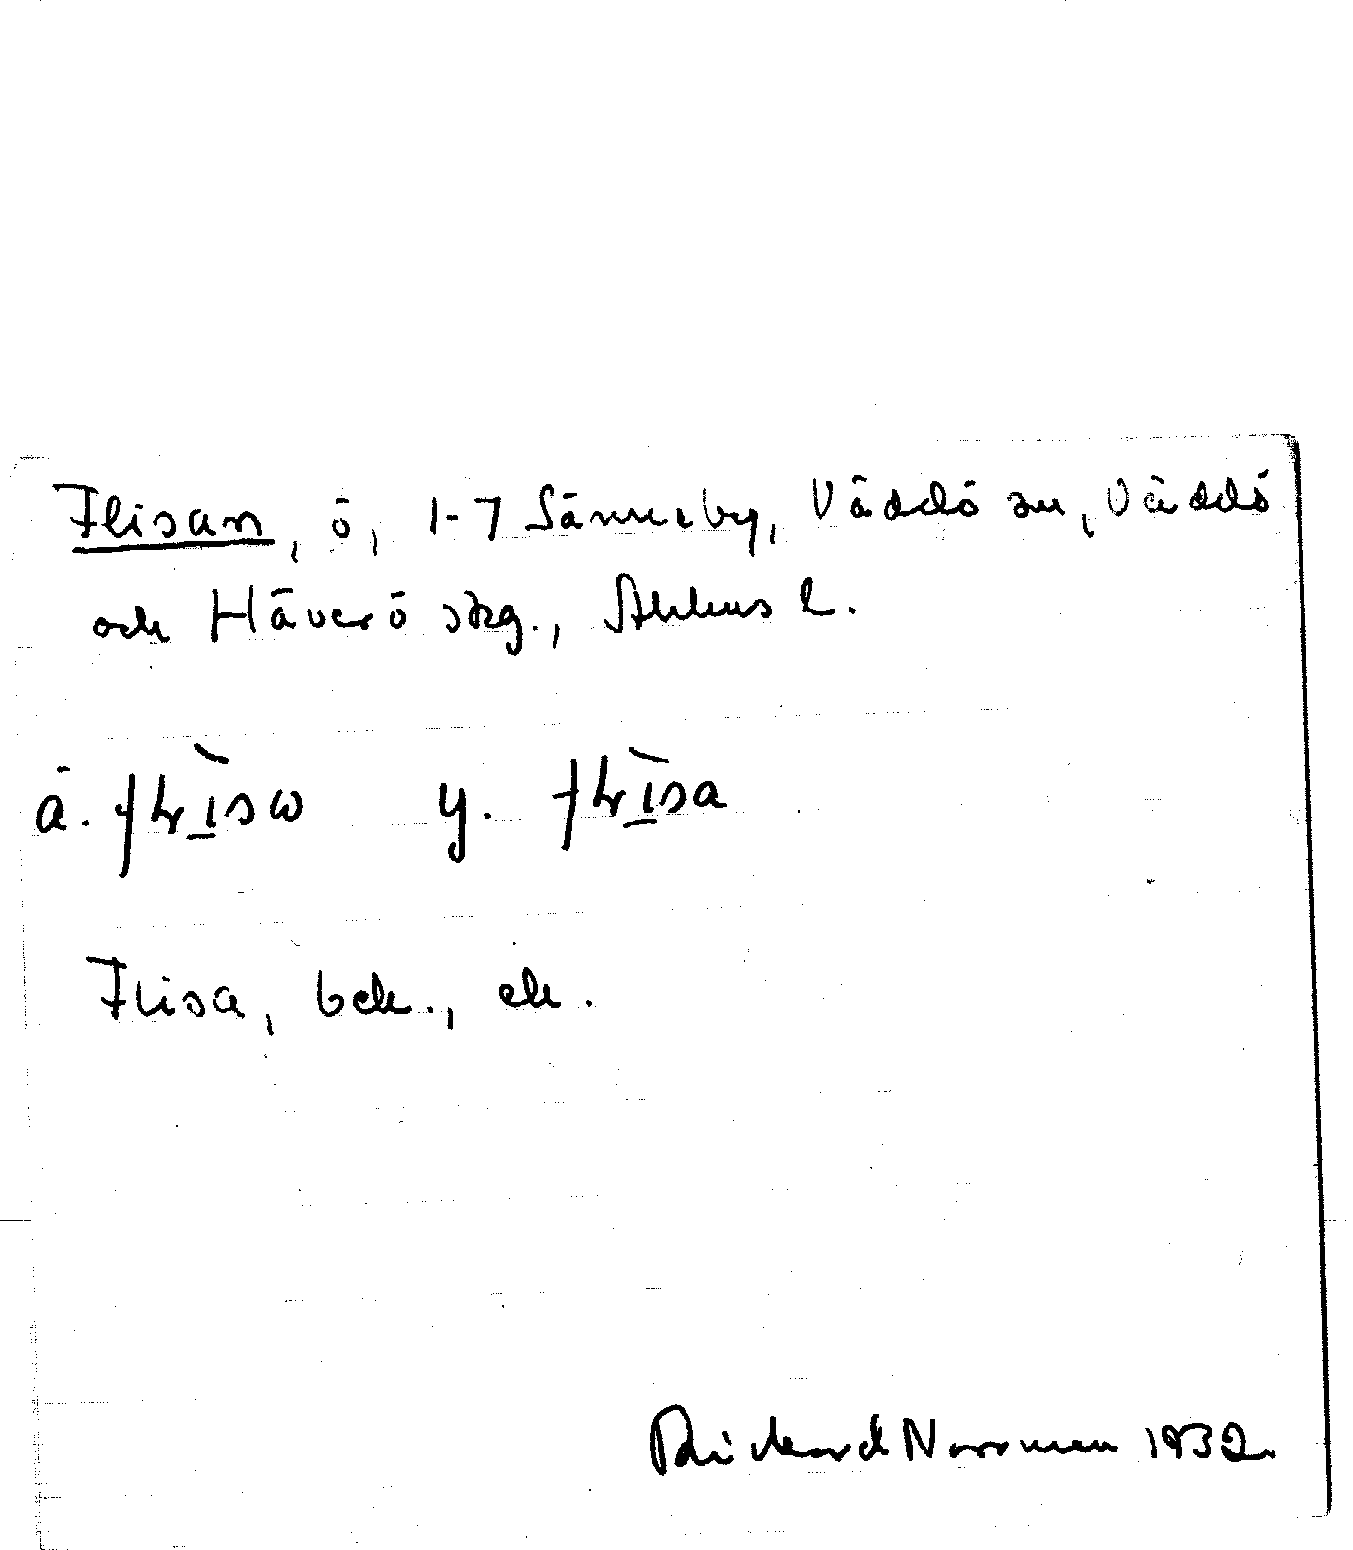 Flisan, ö, 1-7 Sänneby, Väddö sn, Väddö
och Häverö skg., Sthlms l.
ä. flı̀sω y. flı̀sa
Flisa, bek., ek.
Rickard Norrman 1932.